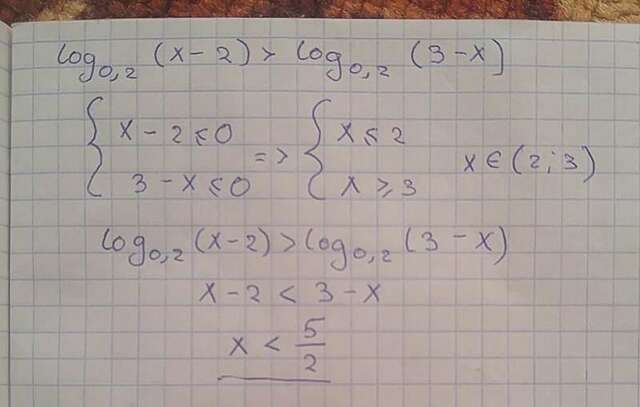 log₀,₂ (x - 2) > log₀,₂ (3 - x)
{ x - 2 ⩽ 0 => { x ⩽ 2
3 - x ⩽ 0 x ⩾ 3 x ∈ (2; 3)
log₀,₂ (x - 2) > log₀,₂ (3 - x)
x - 2 < 3 - x
x < 5/2